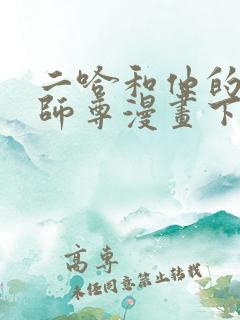 二哈和他的
師尊漫畫下
高專
未經同意禁止转载